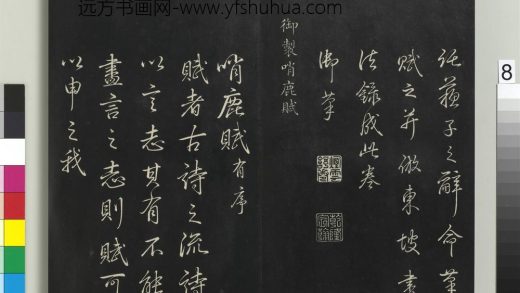 远方书画网-www.yfshuhua.com
託蘓子之辭命筆
賦之并倣東坡書
法錄成此卷
御筆
御製哨鹿賦
哨鹿賦有序
賦者古詩之流詩
以言志其有不能
盡言之志則賦可
以申之我
8